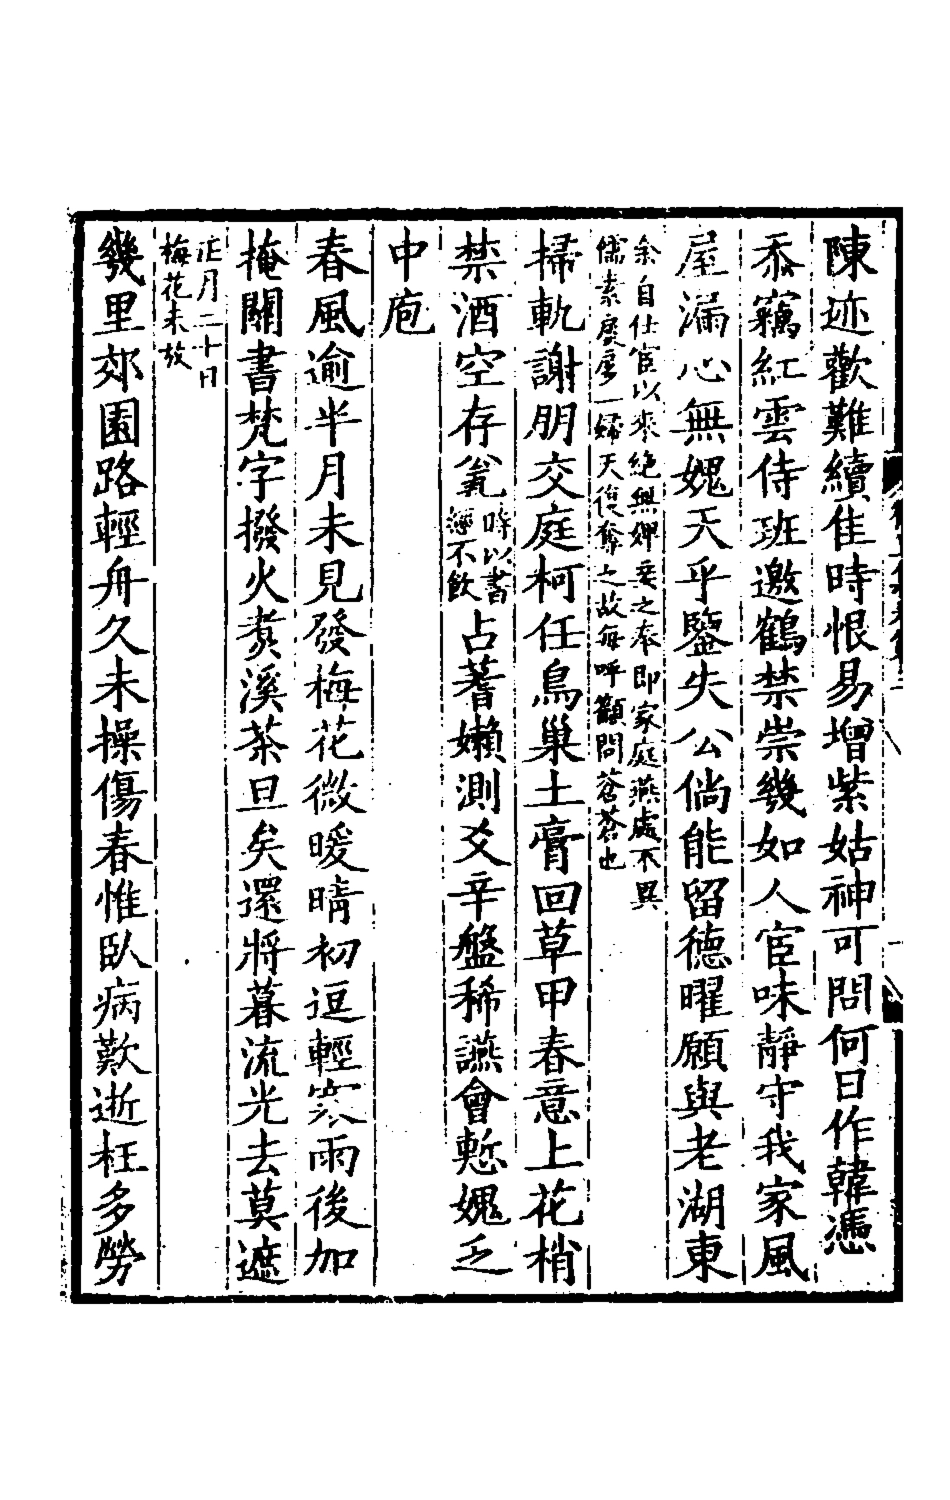 陳迹歡難續佳時恨易增紫姑神可問何日作韓憑
忝竊紅雲侍班邀鶴禁崇幾如人宦味靜守我家風
屋漏心無媿天乎鑒失公倘能留德曜願與老湖東
余自仕宦以來絕無婢妾之奉即家庭燕處不異
儒素廖廖一婦天復奪之故每呼顴問蒼蒼也
掃軌謝朋交庭柯任鳥巢土膏回草甲春意上花梢
禁酒空存瓮時以書
遯不飲占蓍嬾測爻辛盤稀讌會慙媿乏
中庖
春風逾半月未見發梅花微暖晴初逗輕寒雨後加
掩關書梵字撥火煑溪茶旦矣還將暮流光去莫遮
正月二十日
梅花未放
幾里郊園路輕舟久未操傷春惟臥病歎逝枉多勞